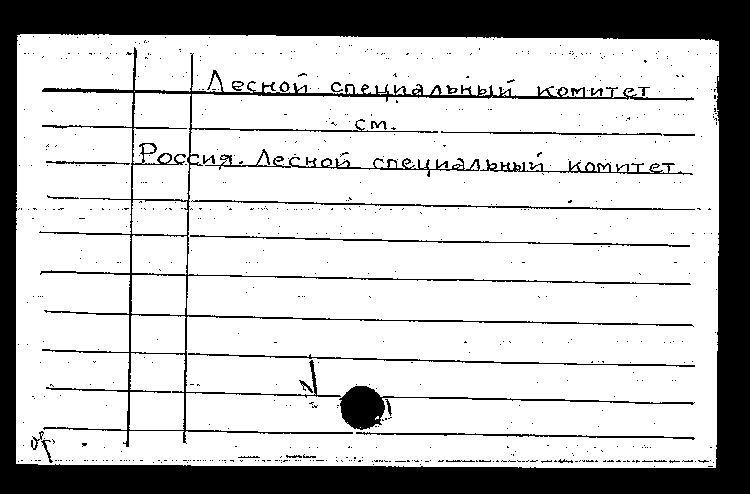 Лесной специальный комитет
см.
Россия. Лесной специальный комитет.